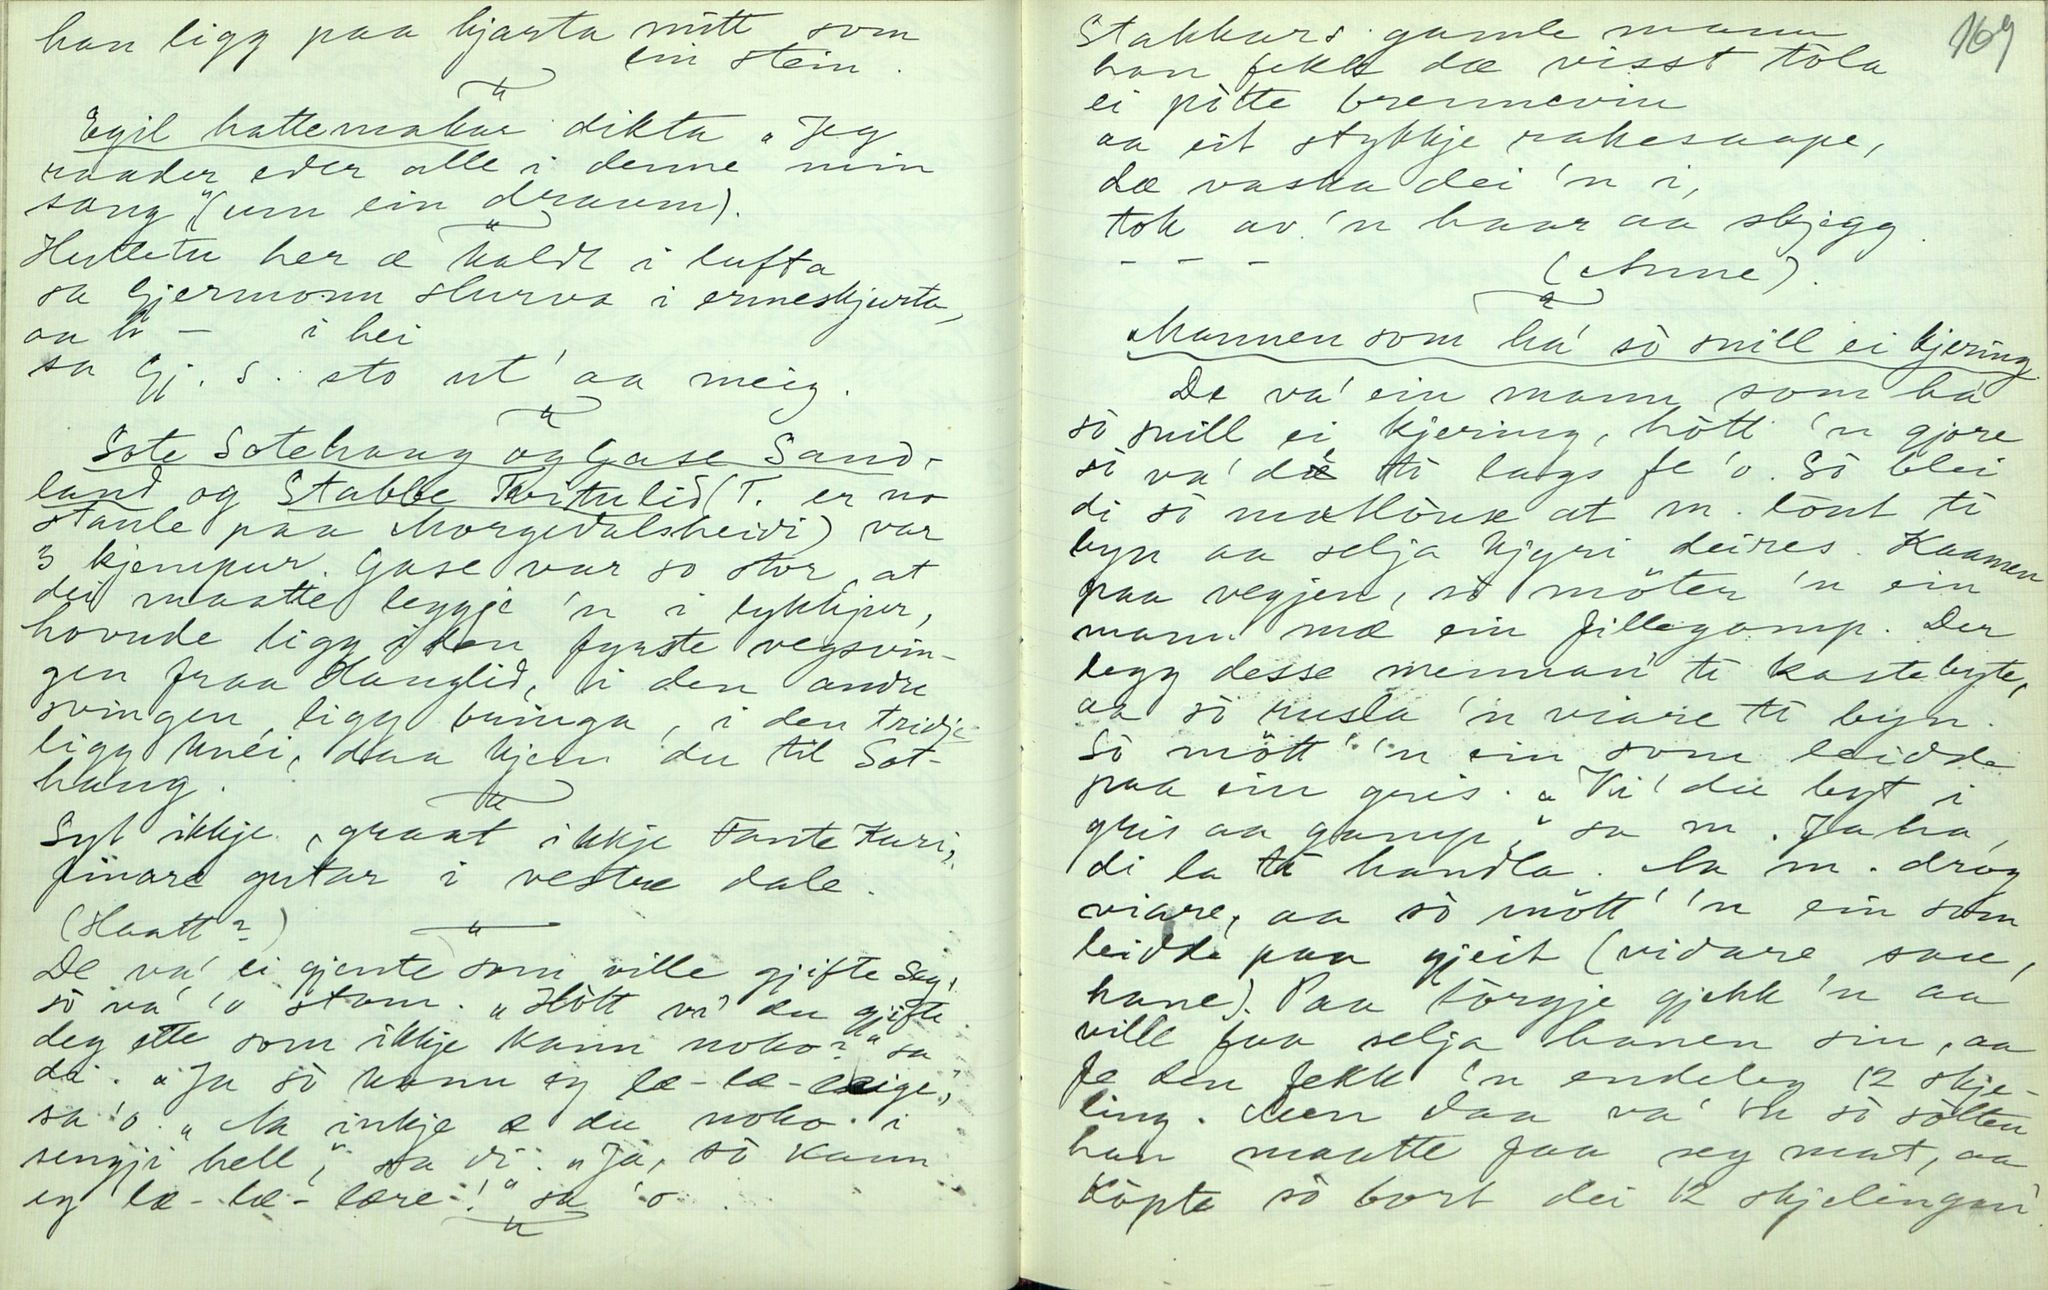 han ligg paa hjarta mitt som
ein stein.
Egil hattemakar dikta "Jeg
raader eder alle i denne min
sang" (um ein draum).
Huttetu her æ kaldt i lufta
sa Gjermonn Slurva i ermeskjurta,
aa h – i hei
sa Gj. S. sto ut' aa meig.
Sote Sotehaug og Gase Sand-
land og Stabbe Tvitulid (T. er no
staule paa Morgedalsheidi) var
3 kjempur. Gase var so stor at
dei maatte leggje 'n i lykkjur,
hovude ligg i den fyrste vegsvin-
gen fraa Hauglid, i den andre
svingen ligg bringa, i den tridje
ligg knei, daa kjem du til Sot-
haug.
Syt ikkje, graat ikkje Fante Kari,
finare gutar i vestre dale.
(Haatt?)
De va' ei gjente som ville gjifte seg,
sò va' 'o stam. "Hòtt vi' du gjifte
deg ette som ikkje kann noko?" sa
dei. "Ja sò kann eg læ-læ-læige,"
sa 'o. "Aa inkje æ du noko i
sengji hell", sa di. "Ja, sò kann
eg læ-læ-lære!" sa 'o.
169
Stakkars gamle mann
han fekk dæ visst tòla
ei pòtte brennevin
aa eit stykkje rakesaape,
dæ vaska dei 'n i,
tok av 'n haar aa skjegg.
– – – (Anne).
Mannen som ha' sò snill ei kjering
De va' ein mann som ha'
sò snill ei kjering, hòtt 'n gjore
sò va' dæ ti lags fe 'o. Sò blei
di sò matlòuse at m. lònt ti
byn aa selja kjyri deires. Kaamen
paa vegjen, sò mòter 'n ein
mann mæ ein fillegamp. Der
legg desse mennan' ti kastebyte,
aa sò rusla 'n viare ti byn.
Sò mòtt' 'n ein som leidde
paa ein gris. "Vi' du byt i
gris aa gamp," sa m. Ja ha,
di la ti handla. Aa m. drog
viare, aa sò mòtt' 'n ein som
leidde paa gjeit (vidare sau,
hane). Paa tòrgje gjekk 'n aa
ville faa selja hanen sin, aa
fe den fekk 'n endeleg 12 skje-
ling. Men daa va' 'n sò sòlten
han maatte faa seg mat, aa
kòpte sò bort dei 12 skjelingan'.